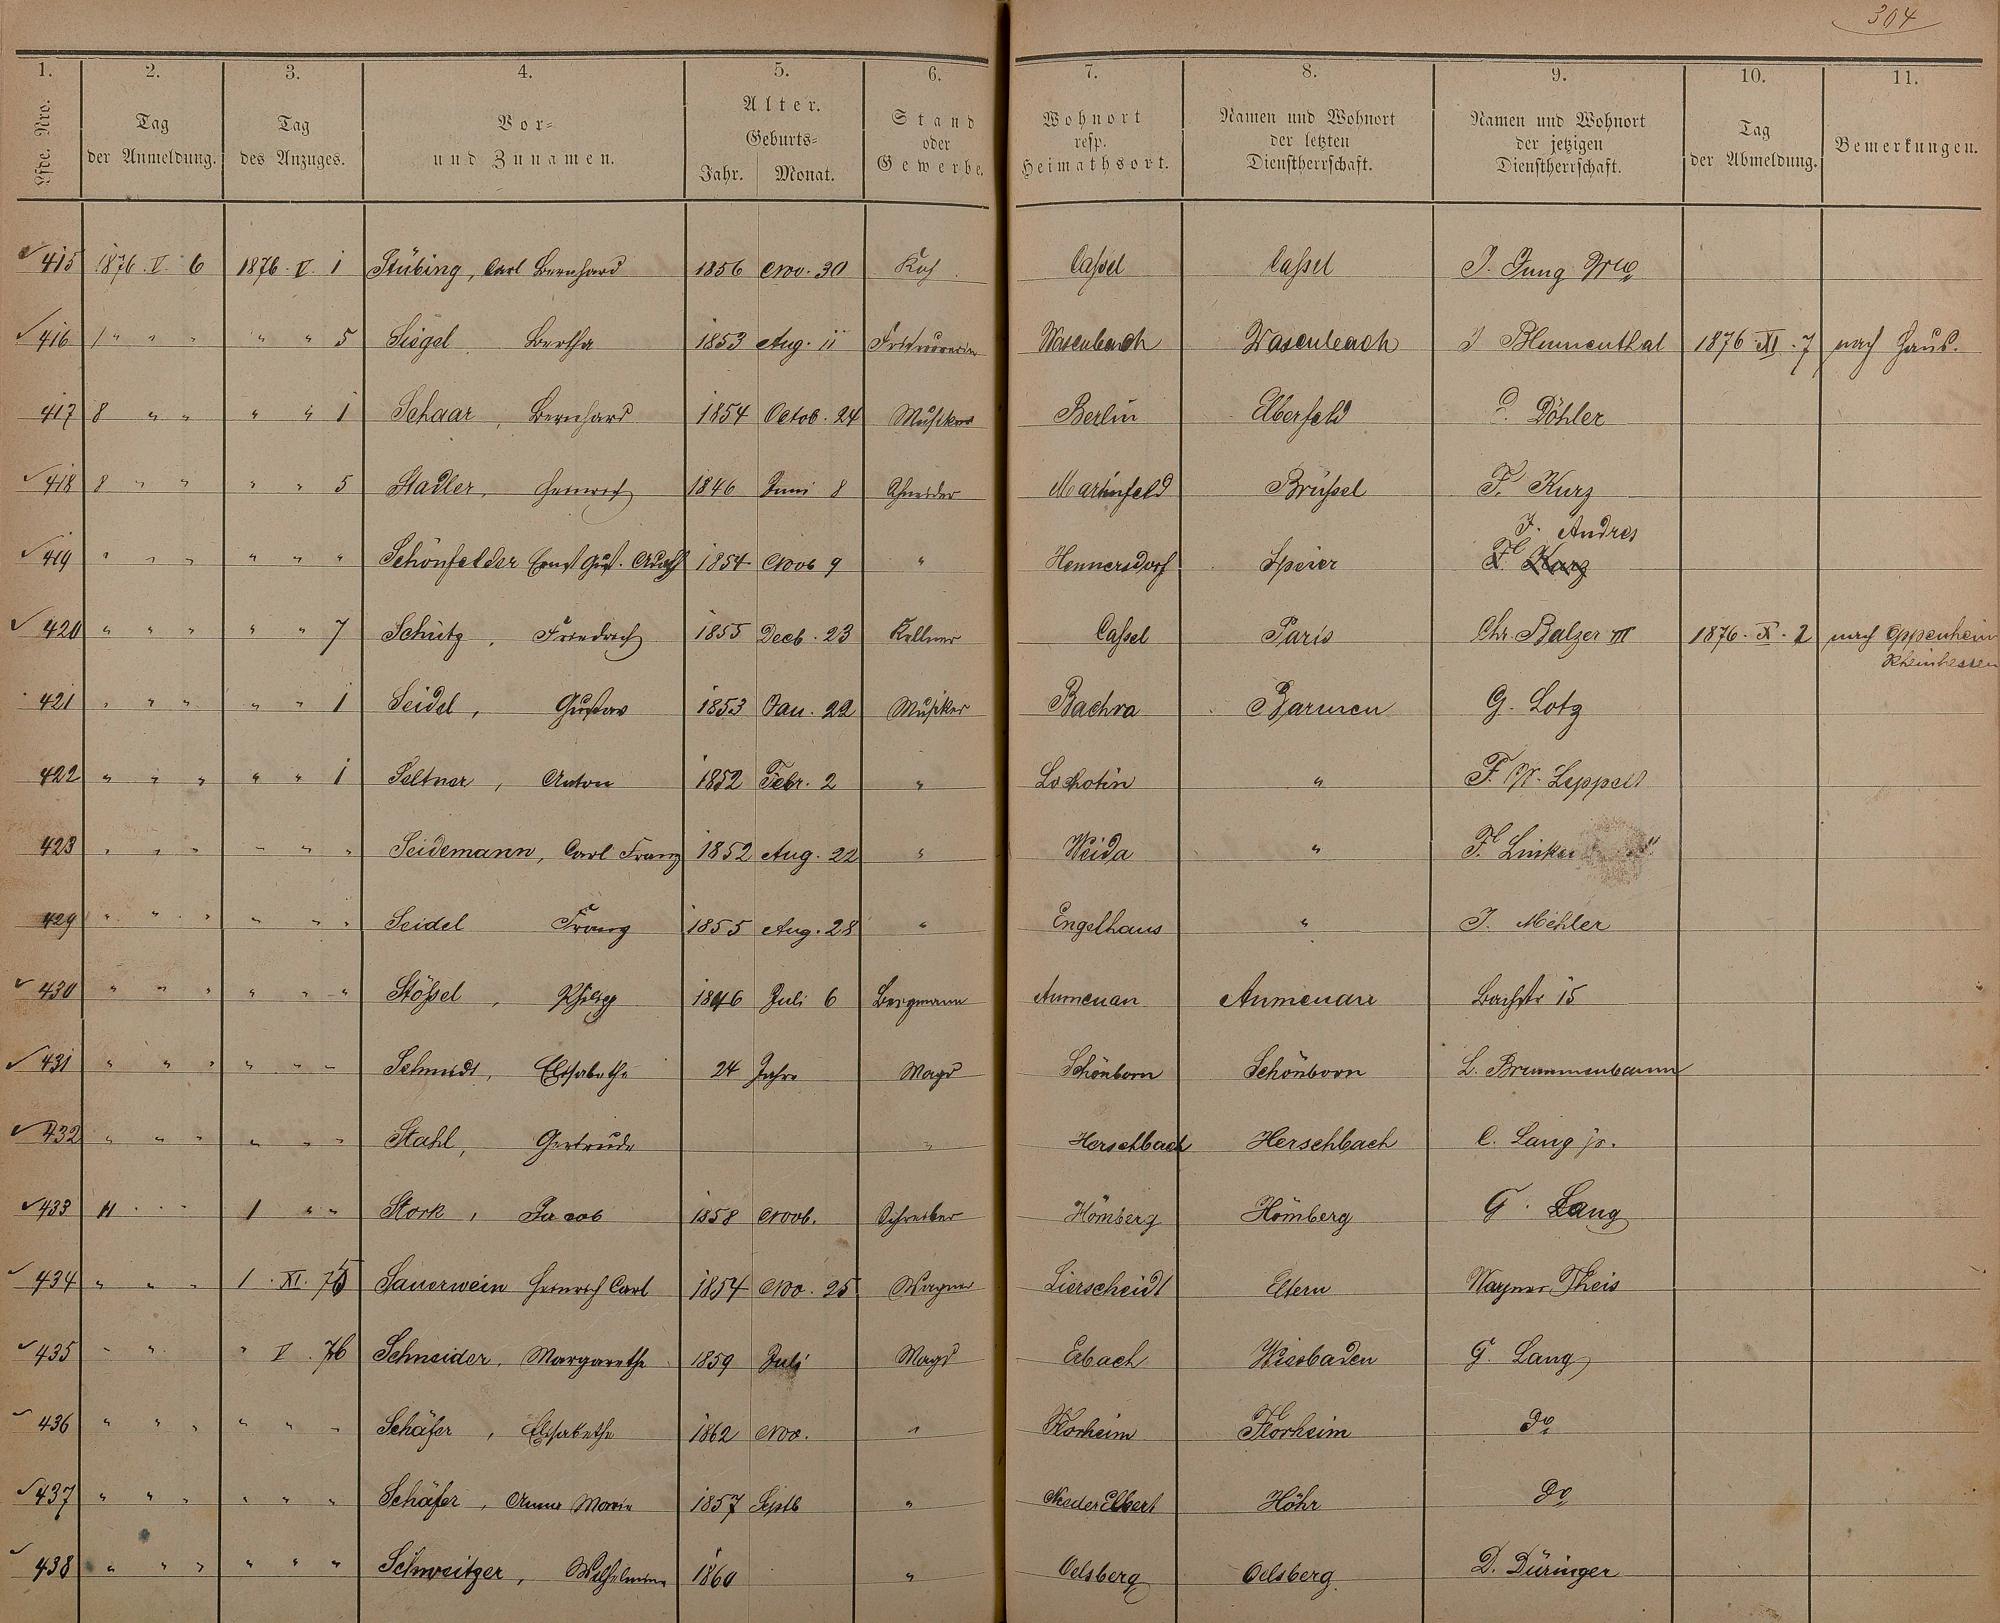 304
1. 2. 3. 4. 5. 6. 7. 8. 9. 10. 11.
Lfde. Nro. Tag der Anmeldung. Tag des Anzuges. Vor- und Zunamen. Alter. Geburts- Jahr. Monat. Stand oder Gewerbe. Wohnort resp. Heimathsort. Namen und Wohnort der letzten Dienstherrschaft. Namen und Wohnort der jetzigen Dienstherrschaft. Tag der Abmeldung. Bemerkungen.
415 1876. V. 6 1876. V. 1 Stübing, Carl Bernhard 1856 Nov. 30 Cassel Cassel J. Jung Wwe
416 1 " " " " " 5 Siegel Bertha 1853 Aug. 11 Wasenbach Wasenbach J Blumenthal 1876 XI. 7 nach Haus.
417 8 " " " " 1 Schaar, Bernhard 1854 Octob. 24 Musiker Berlin Elberfeld Döhler
418 8 " " " " 5 Stadler, Heinrich 1846 Juni 8 Schneider Martinfeld Brüssel F. Kurz
J. Andres
419 " " " " " " Schönfelder Ernst Gust. Adolf 1854 Novb 9 " Hennersdorf Speier F. Kurz
420 " " " " " 7 Schütz, Friedrich 1855 Decb. 23 Kellner Cassel Paris Chr. Balzer III 1876. X. 2 nach Oppenheim
Rheinhessen
421 " " " " " 1 Seidel, Gustav 1853 Jan. 22 Musiker Bachra Barmen G. Lotz
422 " " " " " 1 Seltner, Anton 1852 Febr. 2 " Lochotin " F. W. Leppelt
423 " " " " " " Seidemann, Carl Franz 1852 Aug. 22 " Weida " F. Linker
429 " " " " " " Seidel Franz 1855 Aug. 28 " Engelhaus " J. Mehler
430 " " " " " " Stößel, Philipp 1846 Juli 6 Bergmann Aumenau Aumenau Bachstr 15
431 " " " " " " Schmidt, Elisabethe 24 Jahre Magd Schönborn Schönborn L. Brummenbaum
432 " " " " " " Stahl, Gertrude " Herschbach Herschbach C. Lang jr.
433 11 " " 1 " " Stork, Jacob 1858 Novb. Schreiber Hömberg Hömberg G. Lang
434 " " " 1. XI. 75 Sauerwein Heinrich Carl 1854 Nov. 25 Wagner Lierscheidt Eltern Wagner Theis
435 " " " V. 76 Schneider, Margarethe 1859 Juli Magd Erbach Wiesbaden G. Lang
436 " " " " " " Schäfer, Elisabethe 1862 Nov. " Florheim Florheim Do
437 " " " " " " Schäfer, Anna Marie 1857 Septb " Niederelbert Höhr Do
438 " " " " " " Schweitzer, Wilhelmine 1860 " Oelsberg Oelsberg D. Düringer